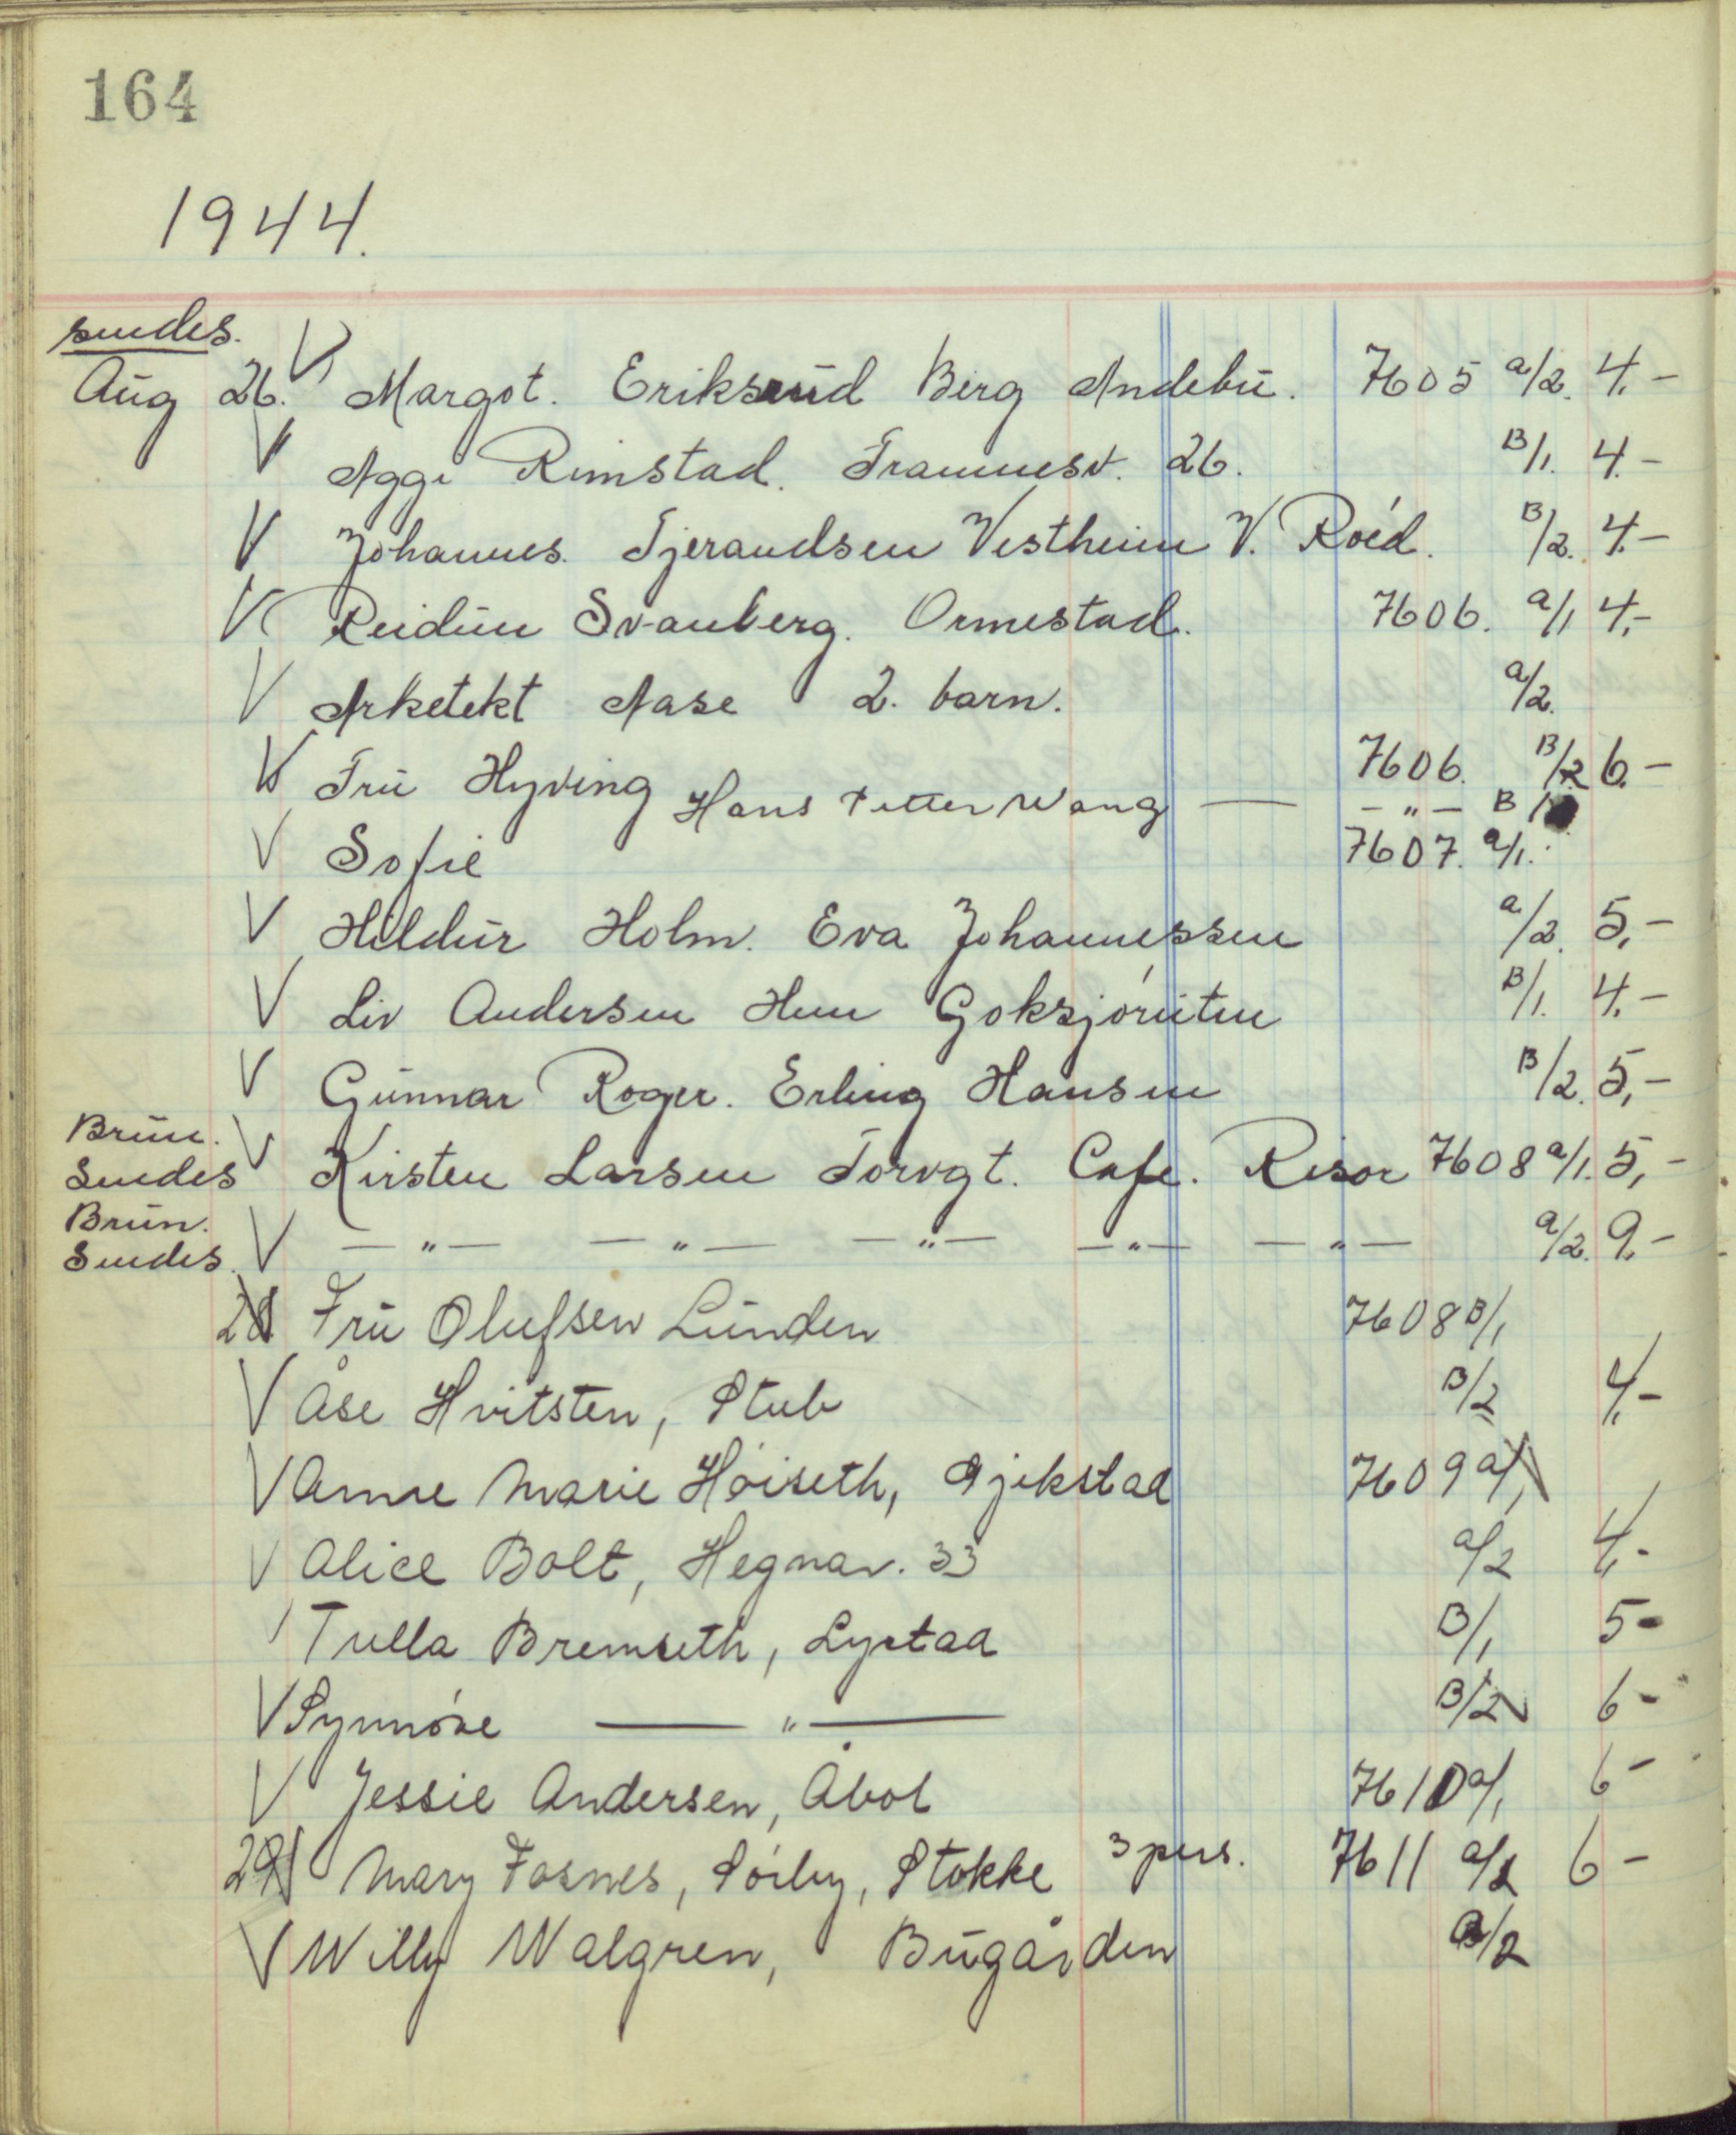 164
1944.
sendes.
Aug 26. V Margot. Eriksrud Berg Andebu. 7605 a/2. 4,-
V Aggi Rimstad. Framnesv. 26. B/1. 4.-
V Johannes. Tjerandsen Vestheim V. Roéd. B/2. 4.-
V Reidun Svanberg. Ormestad. 7606. a/1 4,-
V Arketekt Aase 2. barn. a/2.
V Fru Hyving 7606. B/2 6.-
Hans Petter Wang — - " - B/
V Sofie 7607. a/1.
V Hildur Holm. Eva Johannessen a/2. 5,-
V Liv Andersen Hem Goksjóruten B/1. 4,-
V Gunnar Roger. Erling Hansen B/2. 5,-
Brun.
Sendes V Kirsten Larsen Torvgt. Cafe. Risor 7608 a/1. 5,-
Brun.
Sendes. V —"— —"— —"— —"— —"— a/2. 9,-
28 Fru Olufsen Lunden 7608 B/1
V Åse Hvitsten, Stub B/2 4,-
V Anne Marie Hóiseth, Gjekstad 7609 a/1
V Alice Bolt, Hegnav. 33 a/2 4,-
V Tulla Bremseth, Lystad B/1 5-
V Synnóve —"— B/2 6-
V Jessie Andersen, Åbol 7610 a/1 6-
29 Mary Fosnes, Sórby, Stokke 3 pers. 7611 a/1 6-
V Willy Walgren, Bugården /2